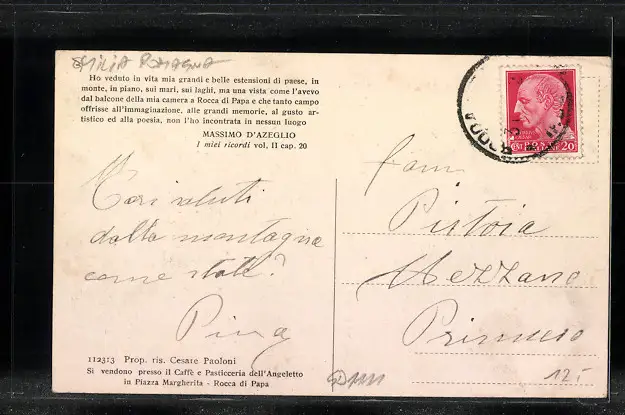 EMILIA ROMAGNA
Ho veduto in vita mia grandi e belle estensioni di paese, in
monte, in piano, sui mari, sui laghi, ma una vista come l'avevo
dal balcone della mia camera a Rocca di Papa e che tanto campo
offrisse all'immaginazione, alle grandi memorie, al gusto ar-
tistico ed alla poesia, non l'ho incontrata in nessun luogo
MASSIMO D'AZEGLIO
I miei ricordi vol, II cap. 20
POSTE ITALIANE
CENT 20
ROCCA
Cari saluti
dalla montagna
come state?
Pina
Fam.
Pistoia
Mezzano
Primiero
112313 Prop. ris. Cesare Paoloni
Si vendono presso il Caffè e Pasticceria dell'Angeletto
in Piazza Margherita - Rocca di Papa
12.-